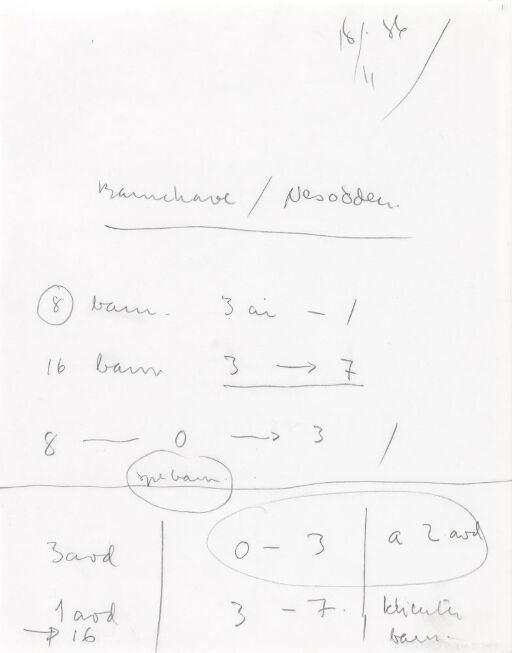 18/11 86
Barnehave / Nesodden.
8 barn. 3 år - /
16 barn 3 → 7
8 — 0 → 3 /
spebarn.
3 avd 0 - 3 a 2 avd
1 avd 3 - 7.
→ 16 barn.